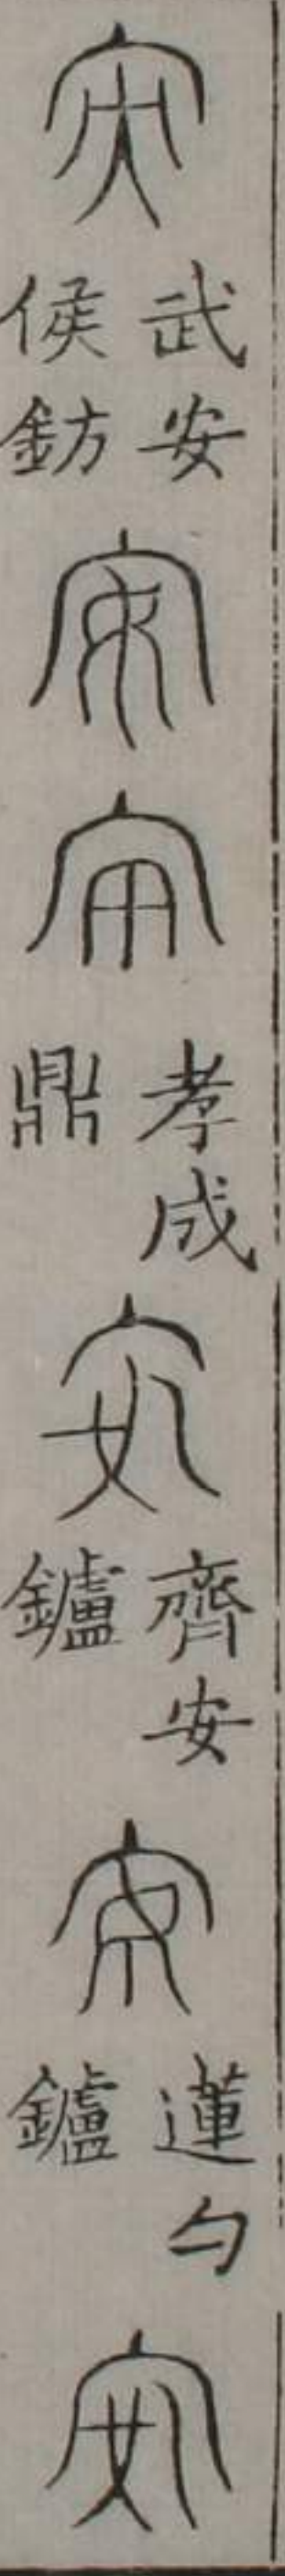 安
武安
侯鈁
安
安
孝成
鼎
安
齊安
鑪
安
蓮勺
鑪
安